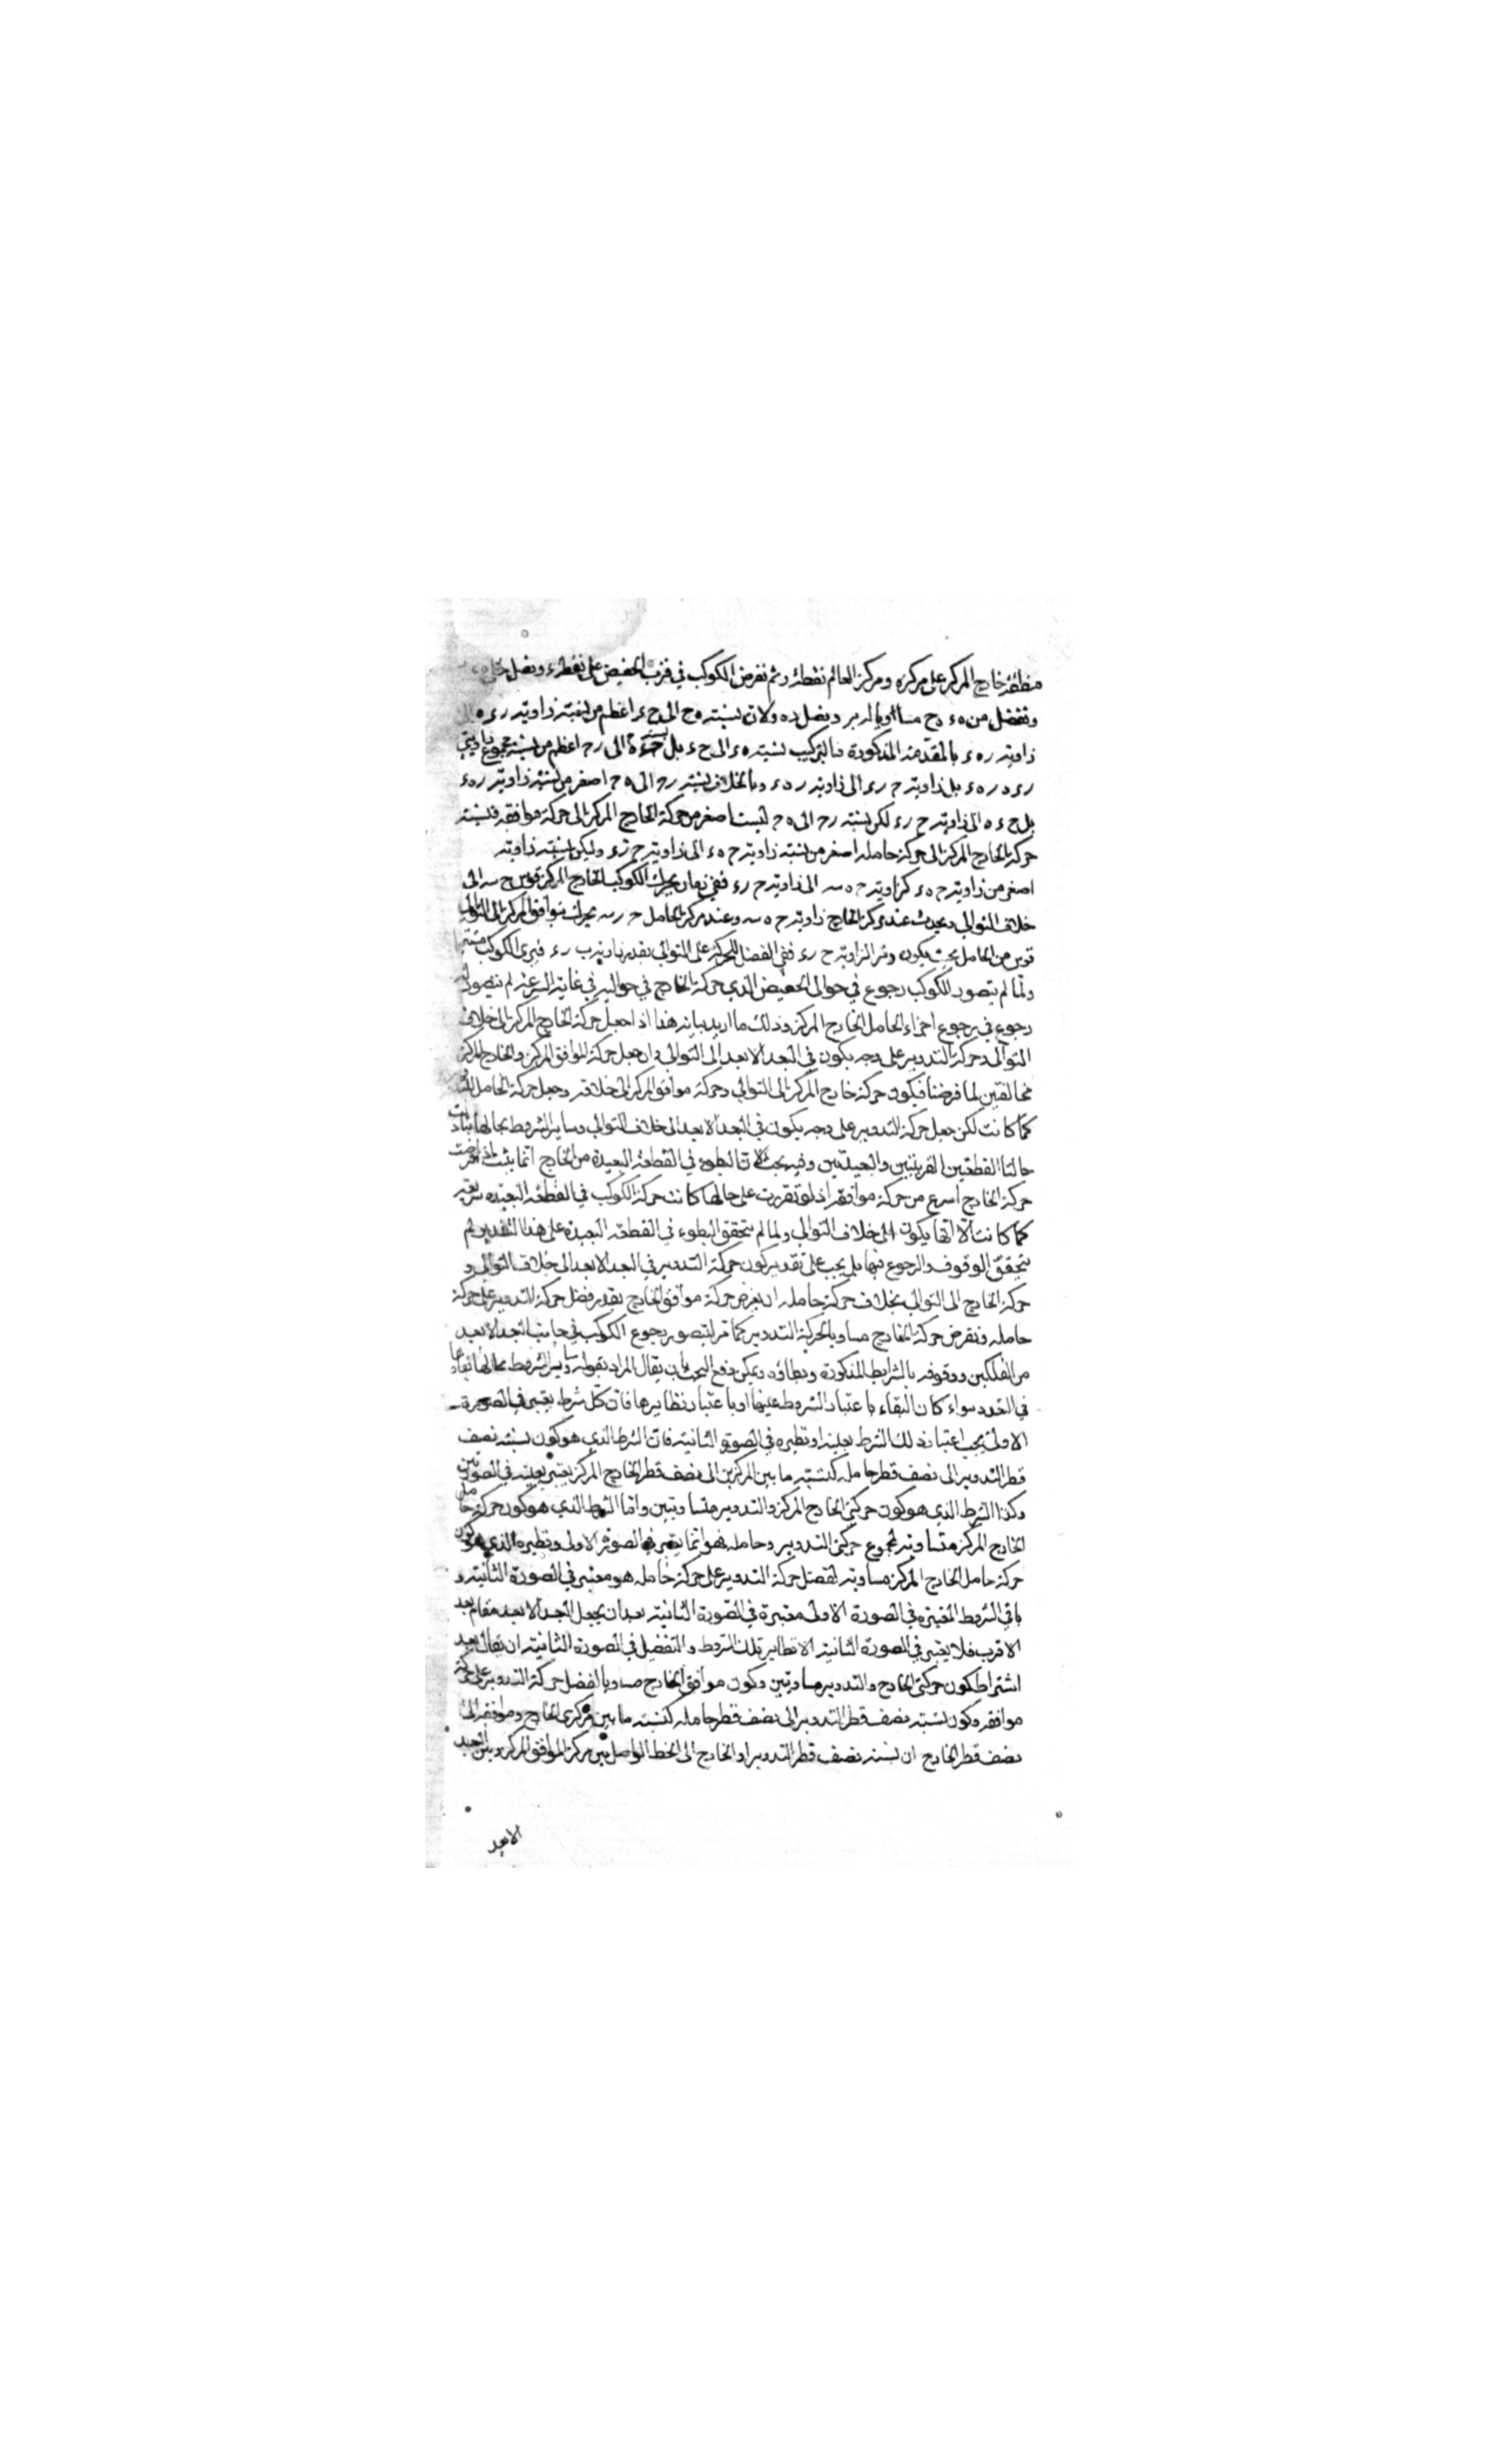 منطقة خارج المركز على مركزه ومركز العالم نقطة ر ثم نفرض الكوكب في قرب الحضيض على نقطة ء ونصل
ونفصل من ه ء ه ح مساويا له ر ونصل ده ولان نسبة ه ح الى ح ء اعظم من نسبة زاوية ر ء ه الى
زاوية ر ه ء بالمقدمة المذكورة فبالتركيب نسبة ه ء الى ح ء بل نسبة الى ر ح اعظم من نسبة مجموع زاويتي
ر ء ه ر ه ء بل زاوية ح ر ء الى زاوية ر ه ء وبالخلاف نسبة ر ح الى ه ح اصغر من نسبة زاوية ر ه ء
بل ح ء ه الى زاوية ح ر ء لكن نسبة ر ح الى ه ح ليست اصغر من حركة الخارج المركز الى حركة موافقه فنسبة
حركة الخارج المركز الى حركة حامله اصغر من نسبة زاوية ح ه ء الى زاوية ح ر ء وليكن نسبة زاوية
اصغر من زاوية ح ه ء كزاوية ح ه سه الى زاوية ح ر ء ففي زمان يحرك الكوكب الخارج المركز قوس ح سه الى
خلاف التوالي ويحدث عند مركز الخارج زاوية ح ه سه وعند مركز الحامل ح ر سه يحرك موافق المركز الى التوالي
قوس من الحامل بحيث يكون وتر الزاوية ح ر ء ففي الفضل للحركة على التوالي بقدر زاوية ر ء فيرى الكوكب
ولما لم يتصور للكوكب رجوع في حوالى الحضيض الذي حركة الخارج في حواليه في غاية السرعة لم يتصور له
رجوع في رجوع اجزاء الحامل الخارج المركز وذلك ما اريد بيانه هذا اذا جعل حركة الخارج المركز الى خلاف
التوالى وحركة التدوير على وجه يكون في البعد الابعد الى التوالي وان جعل حركة الموافق المركز والخارج المركز
مخالفتين لما فرضنا فيكون حركة خارج المركز الى التوالي وحركة موافق المركز الى خلافه وجعل حركة الحامل للتدوير
كما كانت لكن جعل حركة التدوير على وجه يكون في البعد الابعد الى خلاف التوالي وساير الشروط بحالها تبادلت
حالتا القطعتين القريبتين والبعيدتين وفيه بحث لان البطوء في القطعة البعيدة من الخارج انما يثبت اذا فرضت
حركة الخارج اسرع من حركة موافقه اذ لو تقررت على حالها كانت حركة الكوكب في القطعة البعيدة سريعة
كما كانت الا انها يكون الى خلاف التوالي ولما لم يتحقق البطوء في القطعة البعيدة على هذا التقدير لم
يتحقق الوقوف والرجوع فيها بل يجب على تقدير كون حركة التدوير في البعد الابعد الى خلاف التوالى و
حركة الخارج الى التوالى بخلاف حركة حامله ان يفرض حركة موافق الخارج بقدر فضل حركة التدوير على حركة
حامله ونفرض حركة الخارج مساويا لحركة التدوير كما مر ليتصور رجوع الكوكب في جانب البعد الابعد
من الفلكين ووقوفه بالشرايط المذكورة وبطاؤه ويمكن دفع البحث بان يقال المراد بقوله وساير الشروط بحالها بقاؤها
في العدد سواء كان البقاء باعتبار الشروط عينها او باعتبار نظايرها فان كل شرط يعتبر في الصورة
الاولى يجب اعتبار ذلك الشرط بعينه او نظيره في الصورة الثانية فان الشرط الذي هو كون نسبة نصف
قطر التدوير الى نصف قطر حامله كنسبة ما بين المركزين الى نصف قطر الخارج المركز يعتبر بعينه في الصورتين
وكذا الشرط الذي هو كون حركتي الخارج المركز والتدوير متساويتين واما الشرط الذي هو كون حركة حامل
الخارج المركز متساوية لمجموع حركتي التدوير وحامله فهو انما يعتبر في الصورة الاولى ونظيره الذي هو كون
حركة حامل الخارج المركز مساوية لفضل حركة التدوير على حركة حامله هو معتبر في الصورة الثانية و
باقي الشروط المعتبرة في الصورة الاولى معتبرة في الصورة الثانية بعد ان يجعل البعد الابعد مقام البعد
الاقرب فلا يعتبر في الصورة الثانية الا نظاير تلك الشروط والتفصيل في الصورة الثانية ان يقال بعد
اشتراط كون حركتي الخارج والتدوير متساويتين وكون موافق الخارج مساويا لفضل حركة التدوير على حركة
موافقه وكون نسبة نصف قطر التدوير الى نصف قطر حامله كنسبة ما بين مركزي الخارج وموافقه الى
نصف قطر الخارج ان نسبة نصف قطر التدوير او الخارج الى الخط الواصل بين مركز الموافق المركز وبين البعد
الابعد